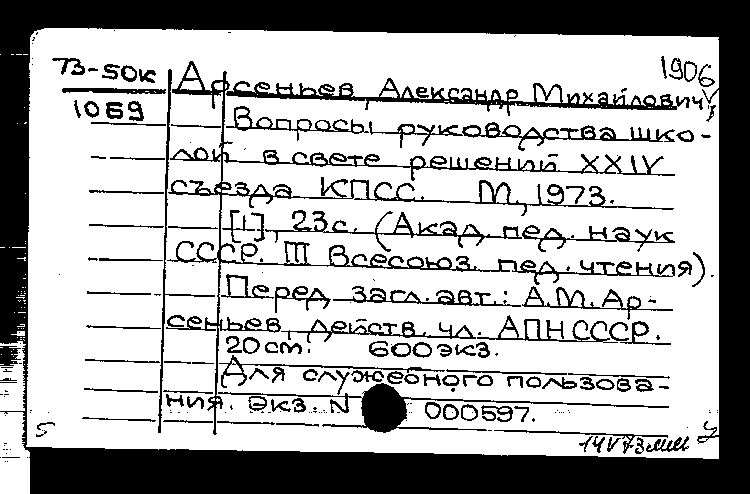 73-50К Арсеньев, Александр Михайлович 1906
1069 Вопросы руководства шко-
лой в свете решений XXIV
съезда КПСС. М, 1973.
[1], 23с. (Акад. пед. наук
СССР. III Всесоюз. пед. чтения).
Перед загл. авт.: А.М. Ар-
сеньев, действ. чл. АПН СССР.
20 cm. 600 экз.
Для служебного пользова-
ния. Экз. N 000597.
5 14 V 73